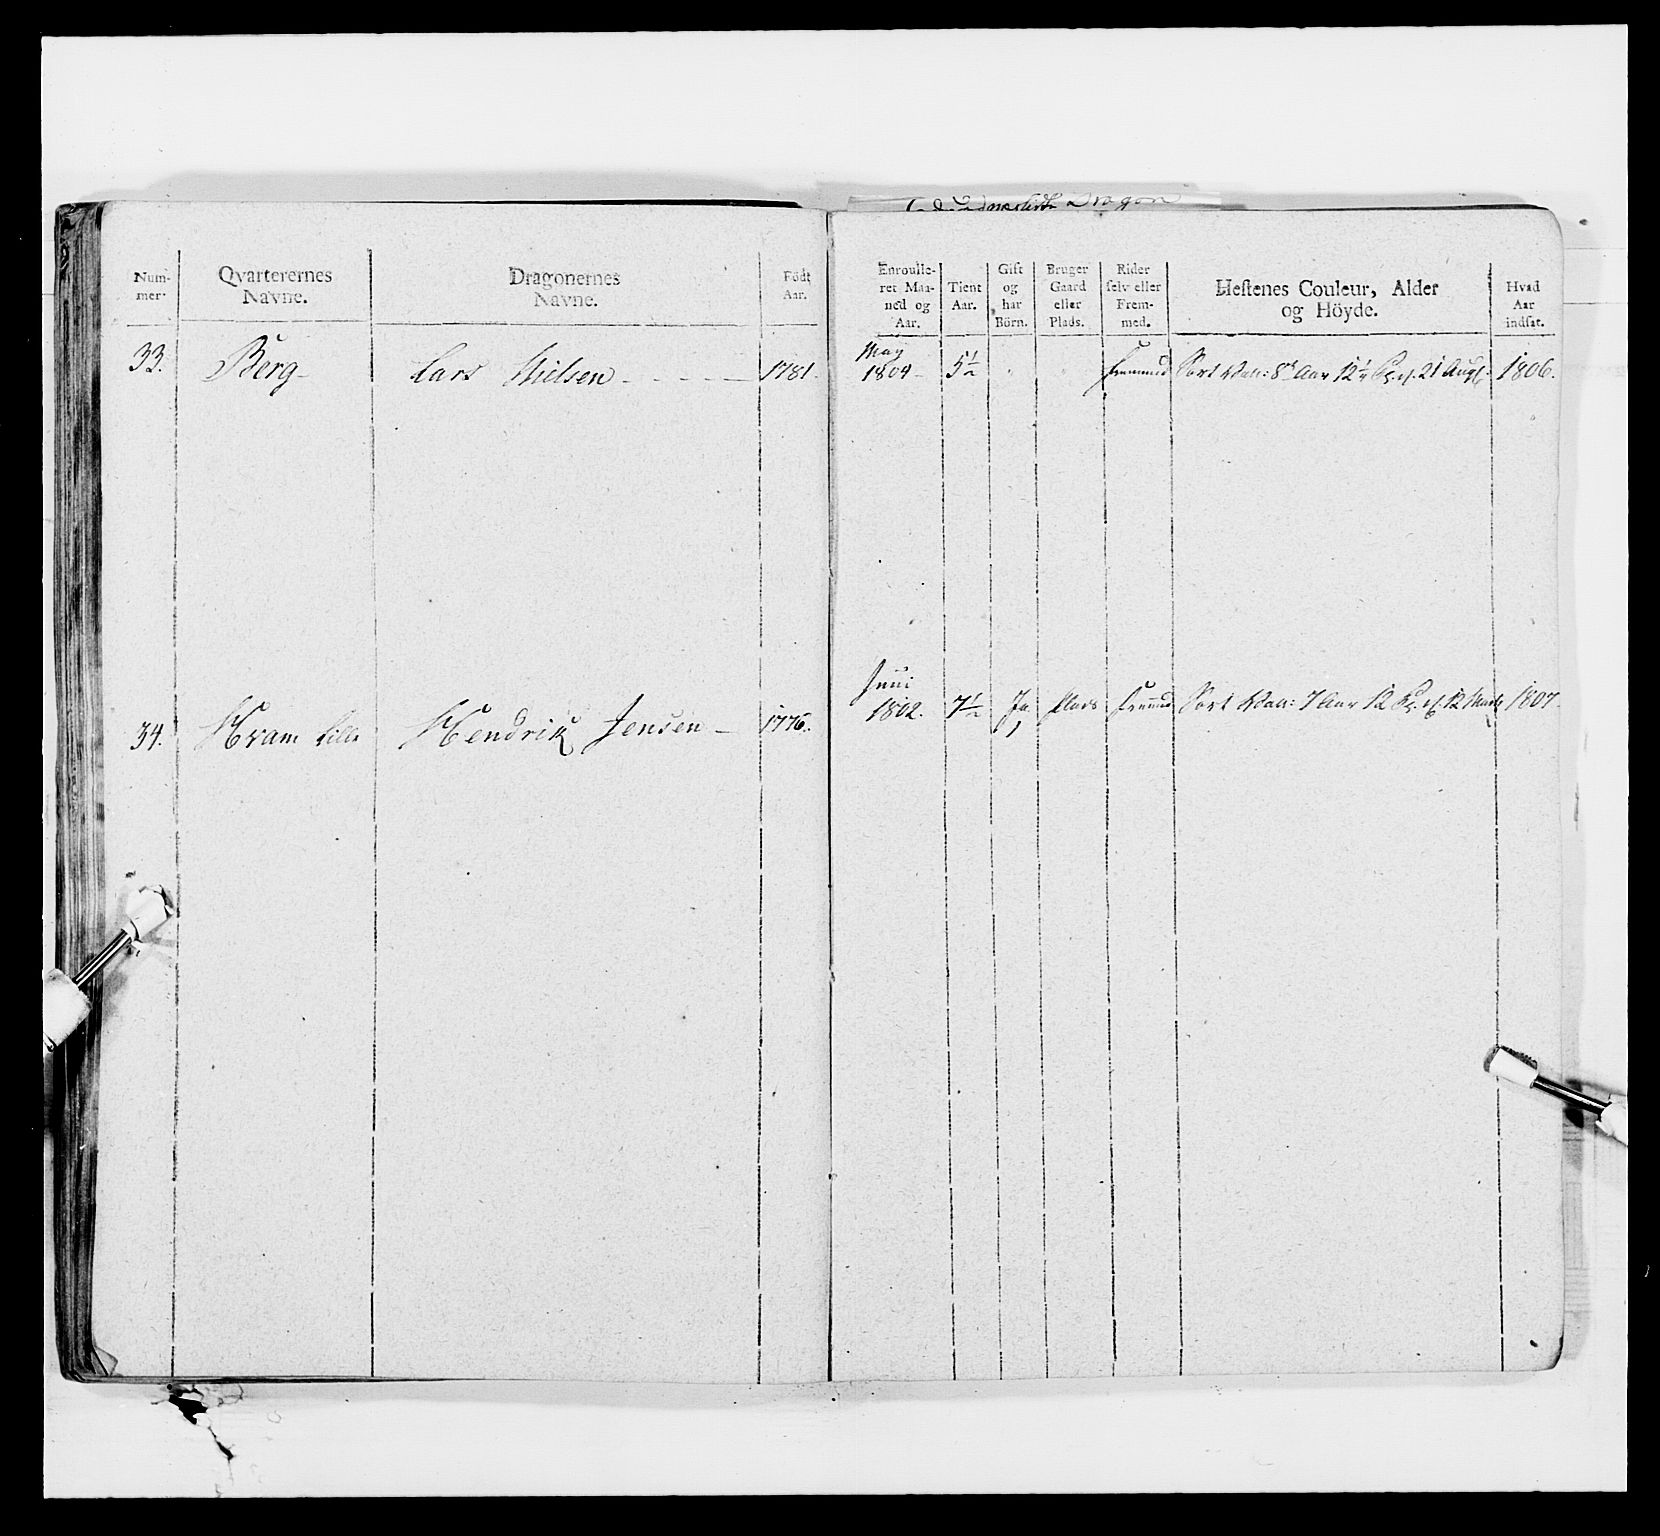 Dragon
Num-
mer.
Qvarterernes
Navne.
Dragonernes
Navne.
Födt
Aar.
Enroulle-
ret Maa-
ned og
Aar.
Tient
Aar.
Gift
og
har
Börn.
Bruger
Gaard
eller
Plads.
Rider
selv eller
Frem-
med.
Hestenes Couleur, Alder
og Höyde.
Hvad
Aar
indsat.
33. Berg Lars Nielsen 1781. May
1804 5½ " " Fremmed Sort 8 Aar 12¼ 21 Aug 1806.
34. Hvam lille Hendrik Jensen 1776. Juni
1802. 7½ Ja Plads Fremmed Sort 7 Aar 12 12 Marts 1807.